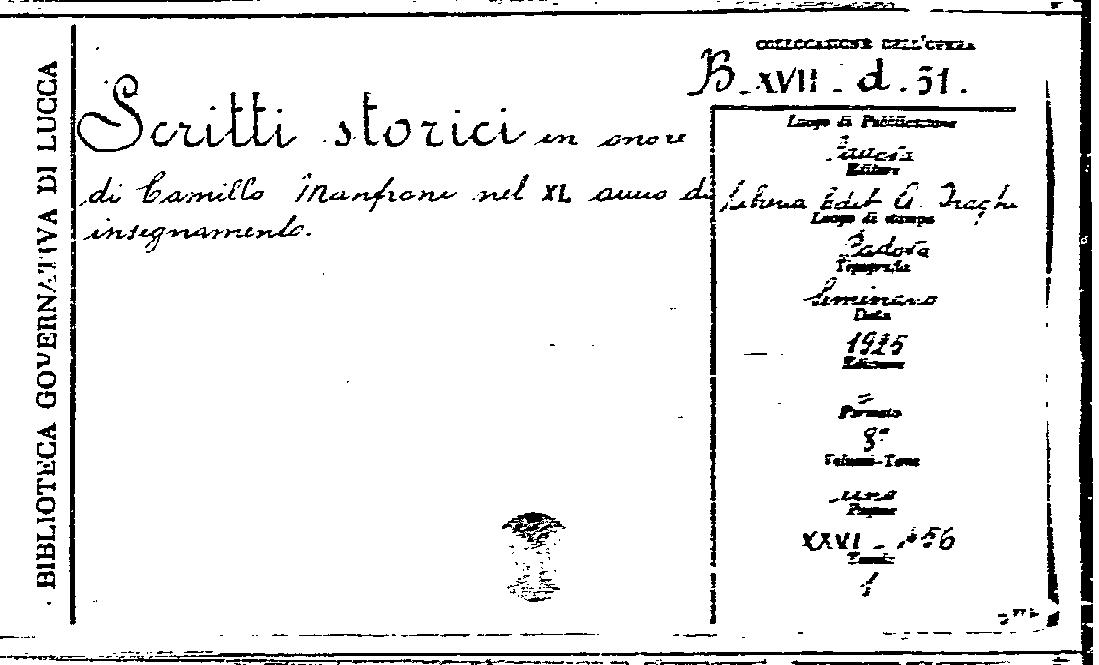 BIBLIOTECA GOVERNATIVA DI LUCCA
COLLOCAZIONE DELL'OPERA
B. XVII. d. 31.
Scritti storici in onore
di Camillo Manfroni nel XL anno di
insegnamento.
Luogo di Pubblicazione
Padova
Editore
Libreria Edit. A. Draghi
Luogo di stampa
Padova
Tipografia
Seminario
Data
1925
Edizione
Formato
8°
Volumi-Tomi
uno
Pagine
XXVI -
Tavole
1